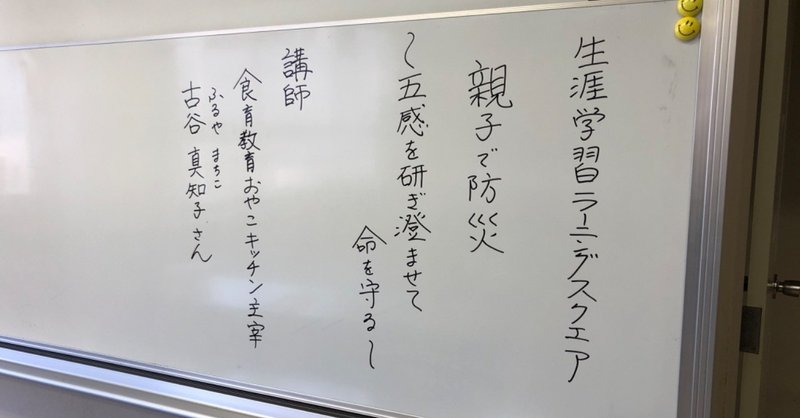 生涯学習ラーニングスクエア
親子で防災
〜五感を研ぎ澄ませて
命を守る〜
講師
食育教育おやこキッチン主宰
ふるや まちこ
古谷 真知子さん